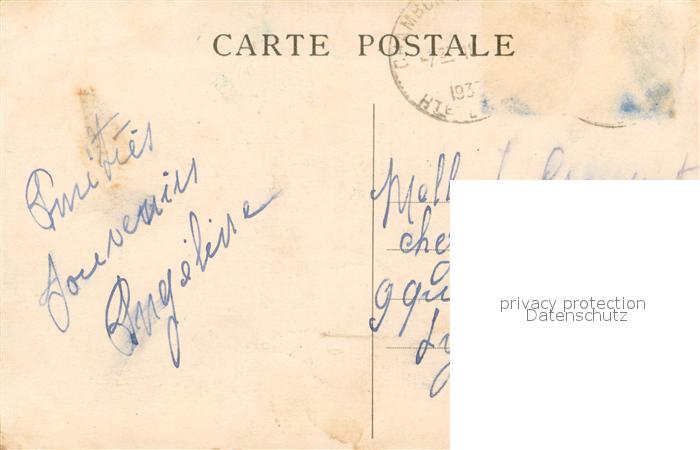 CARTE POSTALE
CHAMBON
193
HTE
Amitiés
souvenirs
Angéline
Mell
chez
9 qu
Ly
privacy protection
Datenschutz